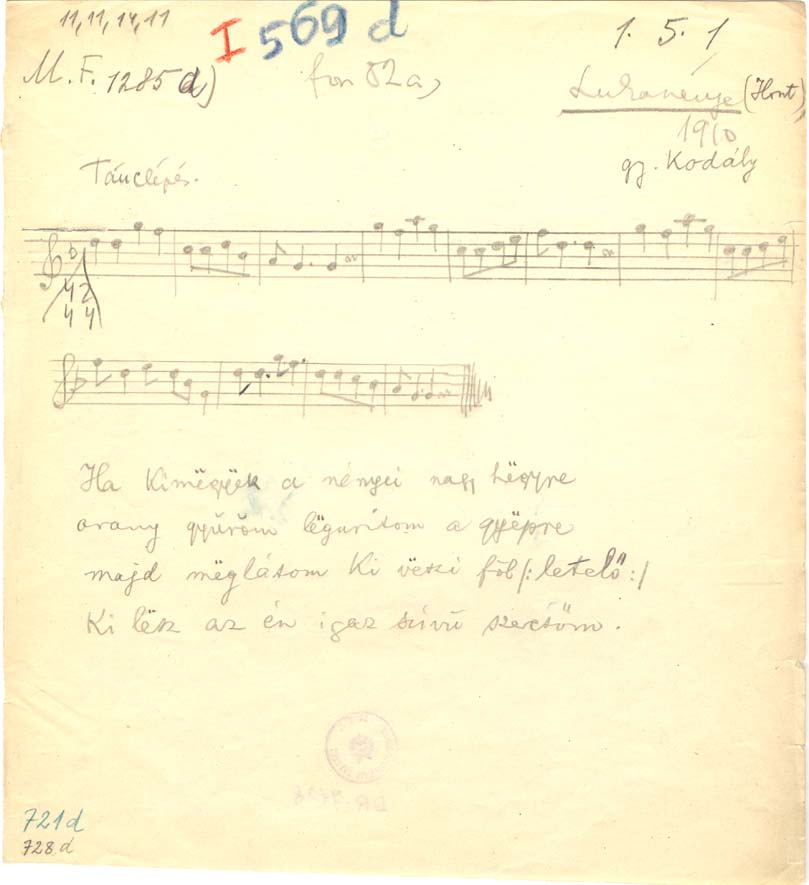 11, 11, 14, 11
I 569 d
1. 5. 1
M. F. 1285 d)
fon 52a)
Lukanénye (Hont)
1910
gy. Kodály
Tánclépés.
4 2
4 4
Ha kimëgyëk a nényei nagy hëgyre
arany gyűrőm lëgurítom a gyëpre
majd mëglátom ki vëszi föl /: letelő :/
Ki lësz az én igaz szívű szeretőm.
721 d
728 d